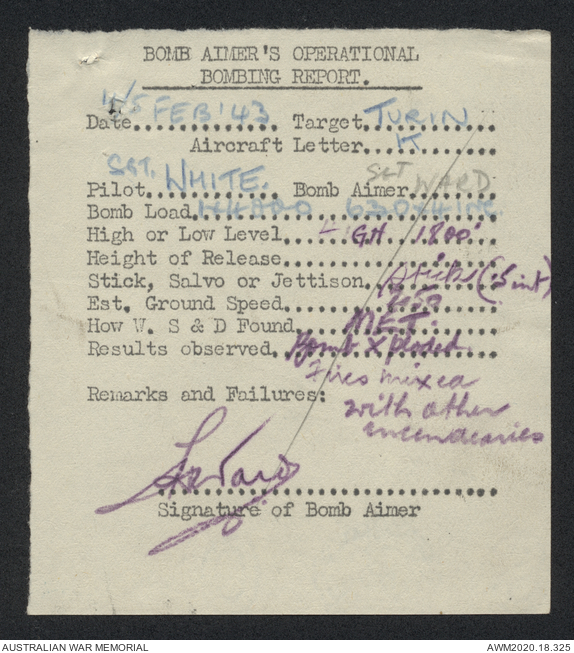 BOMB AIMER'S OPERATIONAL
BOMBING REPORT.
Date 4/5 FEB '43 Target TURIN
Aircraft Letter
Pilot SGT. WHITE. Bomb Aimer SGT WARD
Bomb Load
High or Low Level
Height of Release
Stick, Salvo or Jettison Stick
Est. Ground Speed
How W. S & D Found MET.
Results observed Bomb Xploded
Fires mixed
Remarks and Failures:
with other
incendiaries
Signature of Bomb Aimer
AUSTRALIAN WAR MEMORIAL AWM2020.18.325